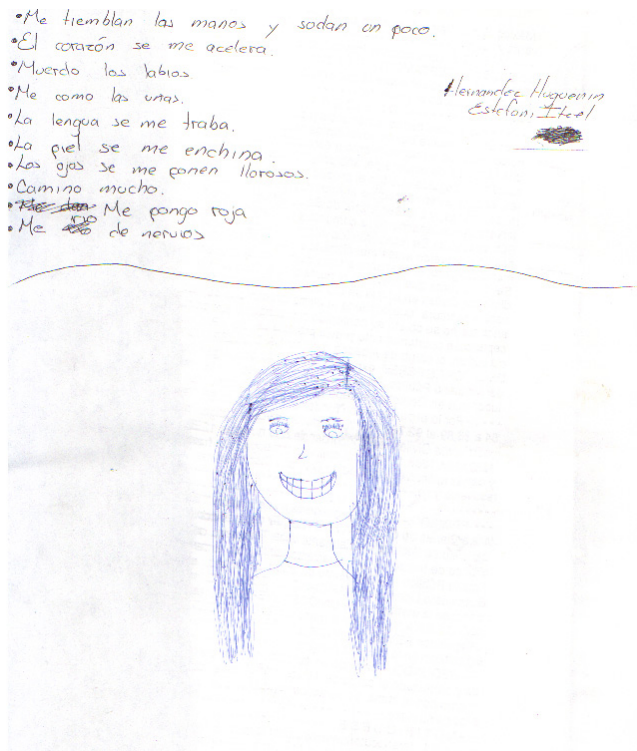 •Me tiemblan las manos y sudan un poco.
•El corazón se me acelera.
•Muerdo los labios
•Me como las uñas.
•La lengua se me traba.
•La piel se me enchina.
•Los ojos se me ponen llorosos.
•Camino mucho.
•Me pongo roja
•Me rio de nervios
Hernandez Huguenin
Estefani Itzel